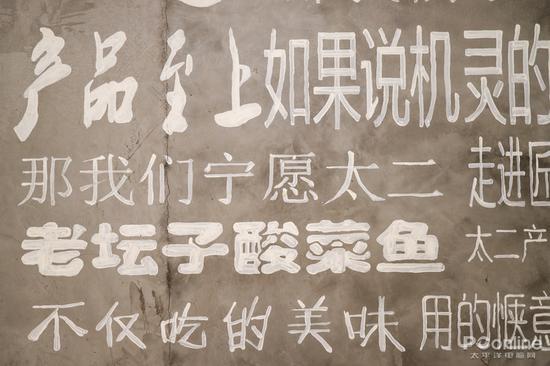 产品至上如果说机灵的
那我们宁愿太二 走进匠
老坛子酸菜鱼 太二产
不仅吃的美味 用的惬意
PConline
太平洋电脑网